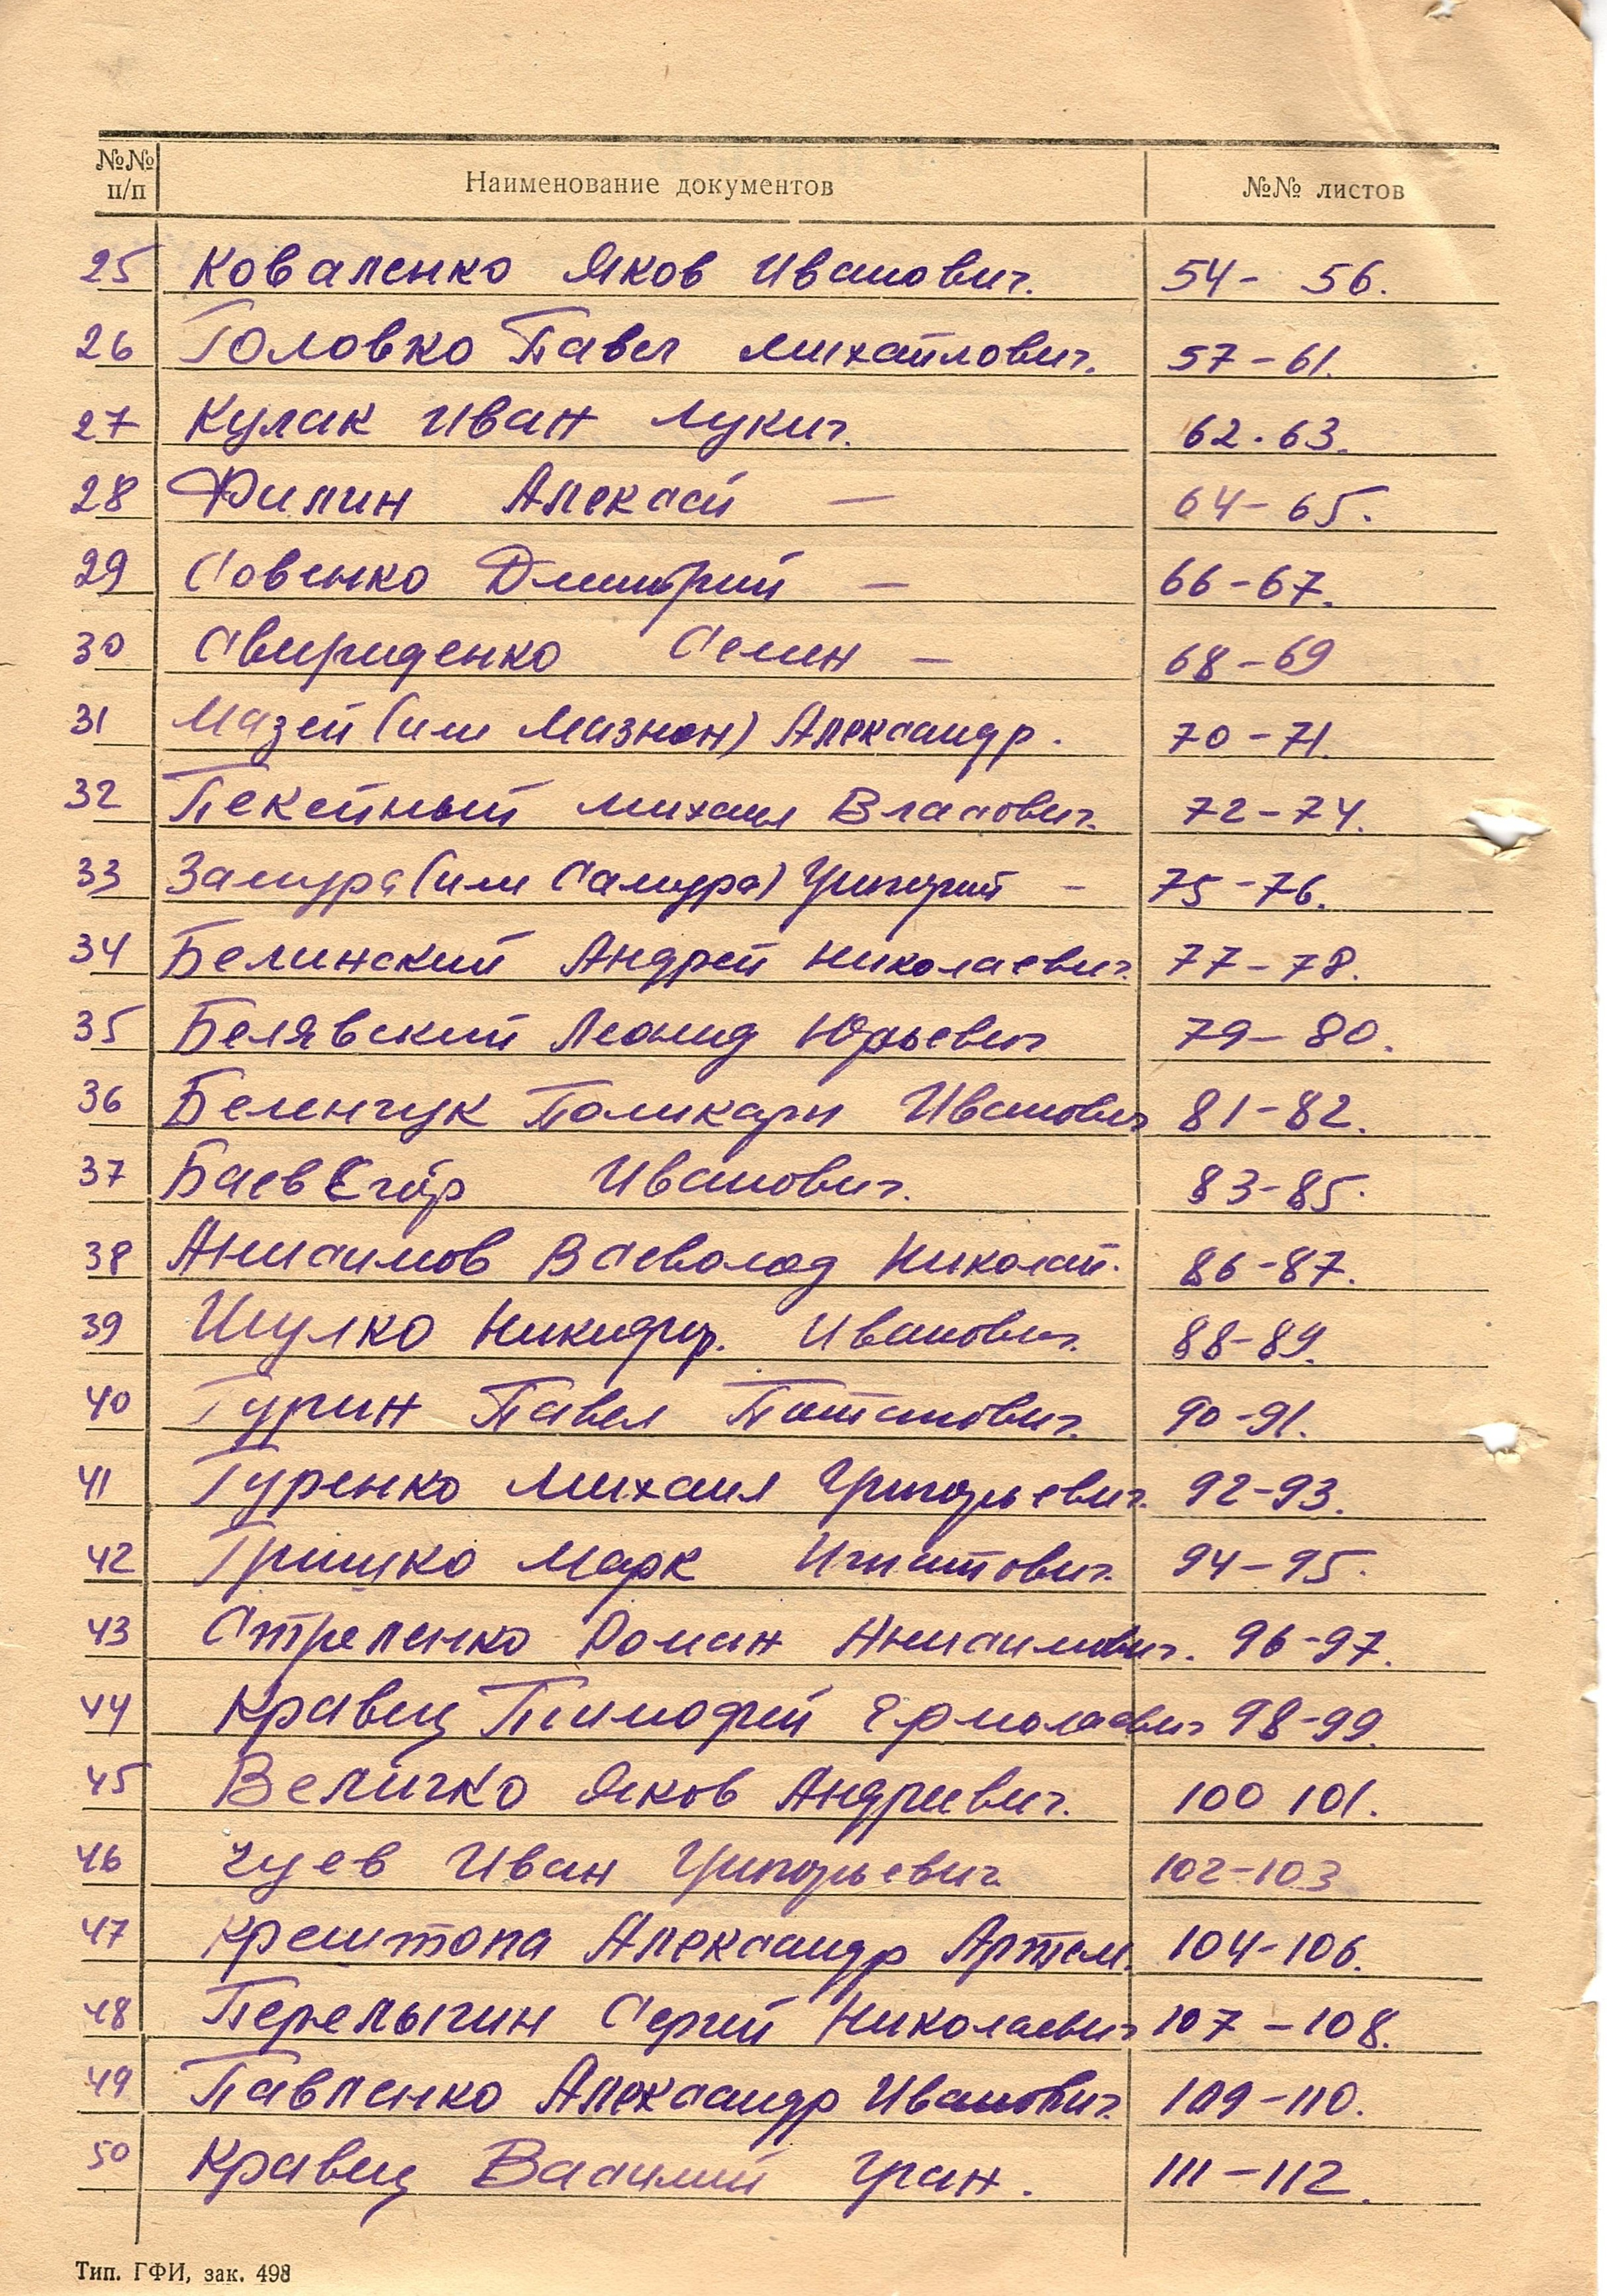 №№ п/п Наименование документов №№ листов
25 Коваленко Яков Иванович. 54- 56.
26 Головко Павел Михайлович. 57-61.
27 Кулак Иван Лукич. 62-63.
28 Филин Алексей — 64-65.
29 Совенко Дмитрий — 66-67.
30 Свириденко Семен — 68-69
31 Мазей (или Мазнон) Александр. 70-71.
32 Пекейный Михаил Власович. 72-74.
33 Замура (или Самура) Григорий - 75-76.
34 Белинский Андрей Николаевич. 77-78.
35 Белявский Леонид Юрьевич 79-80.
36 Беленчук Поликарп Иванович 81-82.
37 Баев Егор Иванович. 83-85.
38 Анисимов Всеволод Николай. 86-87.
39 Шулко Никифор. Иванович. 88-89.
40 Гурин Павел Потапович. 90-91.
41 Гуренко Михаил Григорьевич. 92-93.
42 Гришко Марк Игнатович. 94-95.
43 Стреленко Роман Анисимович. 96-97.
44 Кравец Тимофей Ермолаевич 98-99.
45 Величко Яков Андреевич. 100 101.
46 Чуев Иван Григорьевич. 102-103
47 Крештопа Александр Артем. 104-106.
48 Перелыгин Сергей Николаевич 107-108.
49 Павленко Александр Иванович. 109-110.
50 Кравец Василий Гран. 111-112.
Тип. ГФИ, зак. 498